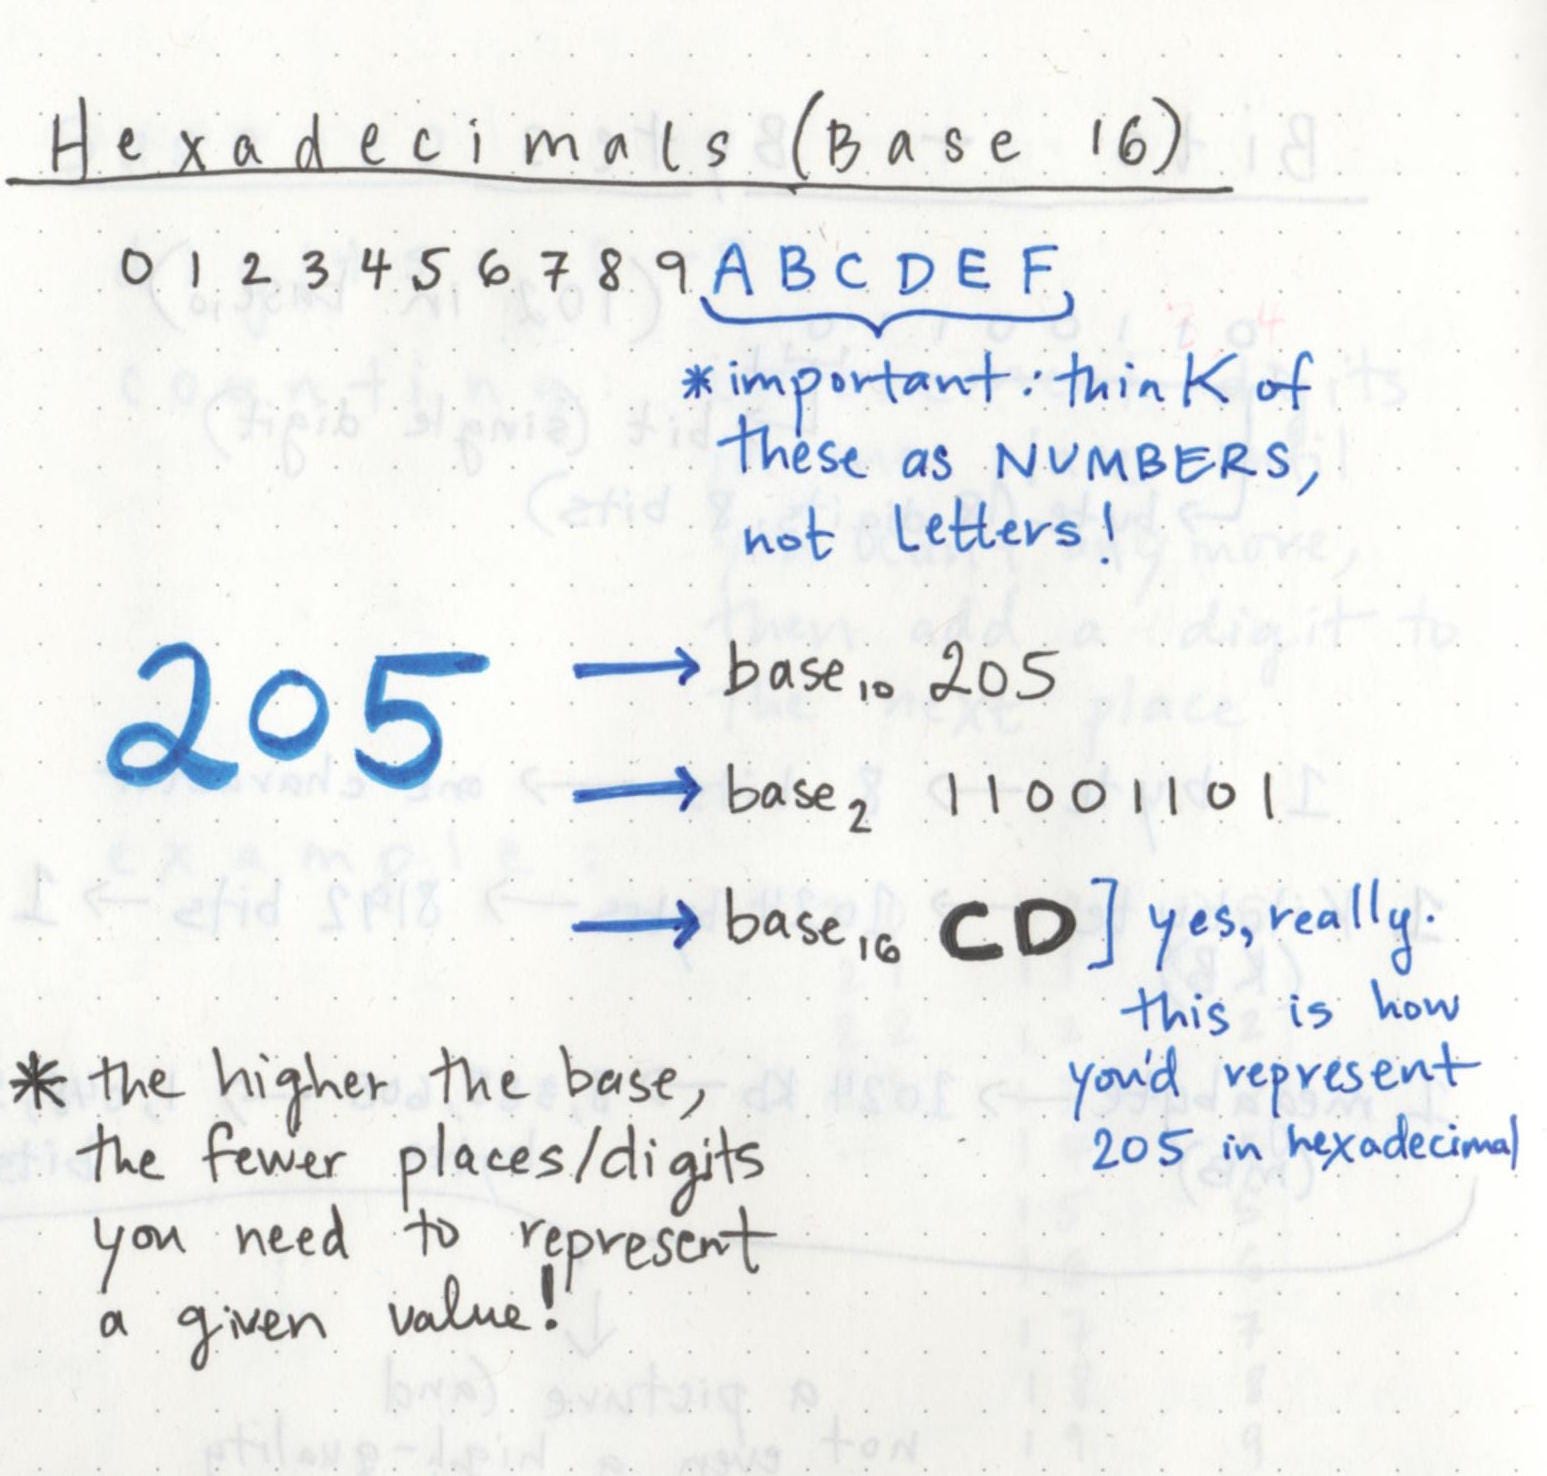 Hexadecimals (Base 16)
0 1 2 3 4 5 6 7 8 9 A B C D E F
* important: think of
these as NUMBERS,
not letters!
205
→ base₁₀ 205
→ base₂ 11001101
→ base₁₆ CD] yes, really.
this is how
you'd represent
205 in hexadecimal
* the higher the base,
the fewer places/digits
you need to represent
a given value!